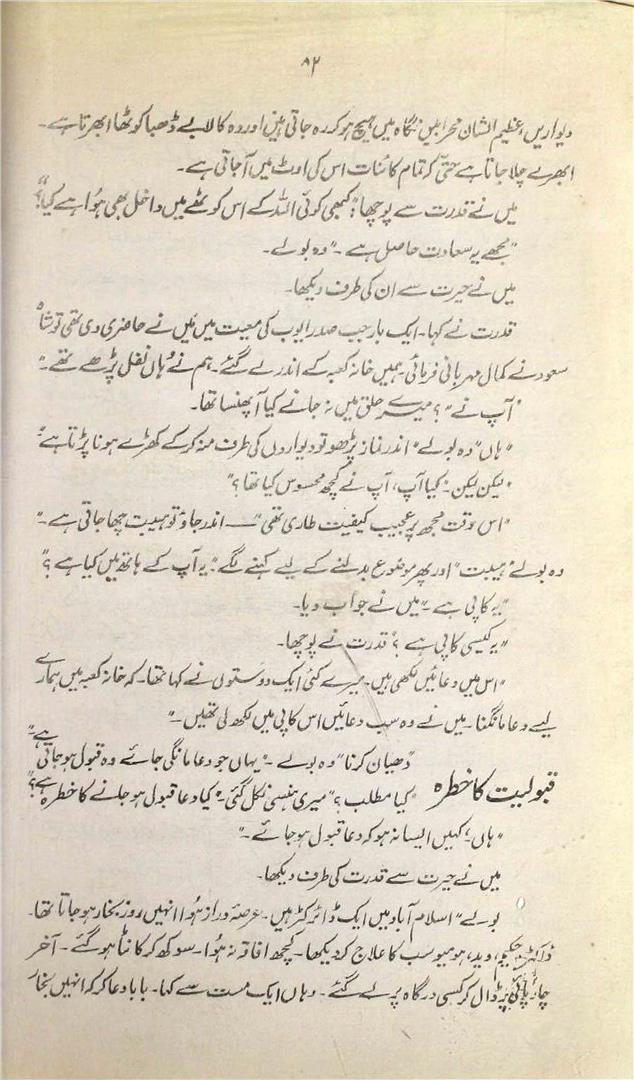 ۸۲
دیواریں، عظیم الشان محرابیں نگاہ میں ہیچ ہو کر رہ جاتی ہیں اور وہ کالا بے ڈھبا کوٹھا ابھرتا ہے۔
ابھرے چلا جاتا ہے حتیٰ کہ تمام کائنات اس کی اوٹ میں آ جاتی ہے۔
میں نے قدرت سے پوچھا: "کبھی کوئی اللہ کے اس کوٹھے میں داخل بھی ہُوا ہے کیا؟"
"مجھے یہ سعادت حاصل ہے۔" وہ بولے۔
میں نے حیرت سے ان کی طرف دیکھا۔
قدرت نے کہا۔ ایک بار جب صدر ایوب کی معیت میں مَیں نے حاضری دی تھی تو شاہ
سعود نے کمال مہربانی فرمائی۔ ہمیں خانہ کعبہ کے اندر لے گئے۔ ہم نے وُہاں نفل پڑھے تھے۔"
"آپ نے"؟ میرے حلق میں نہ جانے کیا آ پھنسا تھا۔
"ہاں" وہ بولے "اندر نماز پڑھو تو دیواروں کی طرف منہ کر کے کھڑے ہونا پڑتا ہے"
"لیکن لیکن۔ کیا آپ، آپ نے کچھ محسوس کیا تھا؟"
"اس وقت مجھ پر عجیب کیفیت طاری تھی" —— اندر جاؤ تو ہیبت چھا جاتی ہے۔"
وہ بولے "ہیبت" اور پھر موضوع بدلنے کے لیے کہنے لگے "یہ آپ کے ہاتھ میں کیا ہے؟"
"یہ کاپی ہے۔" میں نے جواب دیا۔
"یہ کیسی کاپی ہے؟" قدرت نے پوچھا۔
"اس میں دعائیں لکھی ہیں۔ میرے کئی ایک دوستوں نے کہا تھا۔ کہ خانہ کعبہ میں ہمارے
لیے دعا مانگنا۔ میں نے وہ سب دعائیں اس کاپی میں لکھ لی تھیں۔"
"دھیان کرنا" وہ بولے۔ "یہاں جو دعا مانگی جائے وہ قبول ہو جاتی ہے۔"
قبولیت کا خطرہ
"کیا مطلب؟" میری ہنسی نکل گئی۔ "کیا دعا قبول ہو جانے کا خطرہ ہے؟"
"ہاں، کہیں ایسا نہ ہو کہ دعا قبول ہو جائے۔"
میں نے حیرت سے قدرت کی طرف دیکھا۔
بولے "اسلام آباد میں ایک ڈائرکٹر ہیں۔ عرصۂ دراز ہُوا انہیں روز بخار ہو جاتا تھا۔
ڈاکٹر، حکیم، وید، ہومیو سب کا علاج کر دیکھا۔ کچھ افاقہ نہ ہُوا۔ سوکھ کر کانٹا ہو گئے۔ آخر
چارپائی پر ڈال کر کسی درگاہ پر لے گئے۔ وہاں ایک مست سے کہا۔ بابا دعا کر کہ انہیں بخار